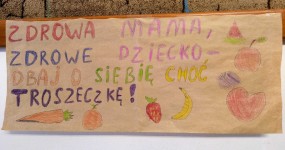 ZDROWA MAMA,
ZDROWE DZIECKO-
DBAJ O SIEBIĘ CHOĆ
TROSZECZKĘ!